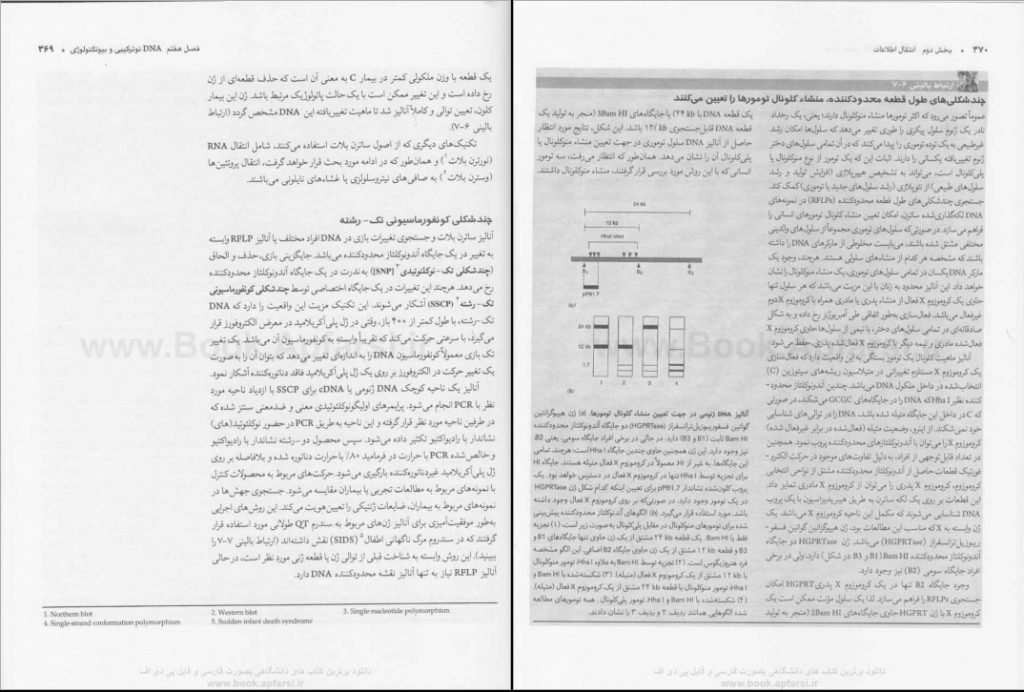 فصل هفتم DNA نوترکیبی و بیوتکنولوژی • ۳۶۹
یک قطعه با وزن ملکولی کمتر در بیمار C به معنی آن است که حذف قطعه‌ای از ژن
رخ داده است و این تغییر ممکن است با یک حالت پاتولوژیک مرتبط باشد. ژن این بیمار
کلون، تعیین توالی و کاملاً آنالیز شد تا ماهیت تغییریافته این DNA مشخص گردد (ارتباط
بالینی ۶-۷).
تکنیک‌های دیگری که از اصول ساترن بلات استفاده می‌کنند، شامل انتقال RNA
(نورترن بلات۱) و همان‌طور که در ادامه مورد بحث قرار خواهد گرفت، انتقال پروتئین‌ها
(وسترن بلات۲) به صافی‌های نیتروسلولزی یا غشاهای نایلونی می‌باشند.
چندشکلی کونفورماسیونی تک- رشته
آنالیز ساترن بلات و جستجوی تغییرات بازی در DNA افراد مختلف با آنالیز RFLP وابسته
به تغییر در یک جایگاه آندونوکلئاز محدودکننده می‌باشد. جایگزینی بازی، حذف و الحاق
(چندشکلی تک- نوکلئوتیدی۳ [SNP]) به ندرت در یک جایگاه آندونوکلئاز محدودکننده
رخ می‌دهد. هرچند این تغییرات در یک جایگاه اختصاصی توسط چندشکلی کونفورماسیونی
تک- رشته۴ (SSCP) آشکار می‌شوند. این تکنیک مزیت این واقعیت را دارد که DNA
تک-رشته، با طول کمتر از ۴۰۰ باز، وقتی در ژل پلی‌آکریلامید در معرض الکتروفورز قرار
می‌گیرد، با سرعتی حرکت می‌کند که تقریباً وابسته به کونفورماسیون آن می‌باشد. یک تغییر
تک بازی معمولاً کونفورماسیون DNA را به اندازه‌ای تغییر می‌دهد که بتوان آن را به‌صورت
یک تغییر حرکت در الکتروفورز بر روی یک ژل پلی‌آکریلامید فاقد دناتوره‌کننده آشکار نمود.
آنالیز یک ناحیه کوچک DNA ژنومی یا cDNA برای SSCP با ازدیاد ناحیه مورد
نظر با PCR انجام می‌شود. پرایمرهای اولیگونوکلئوتیدی معنی و ضدمعنی سنتز شده که
در طرفین ناحیه مورد نظر قرار گرفته و این ناحیه به طریق PCR در حضور نوکلئوتید(های)
نشاندار با رادیواکتیو تکثیر داده می‌شود. سپس محصول دو-رشته نشاندار با رادیواکتیو
و خالص‌شده PCR با حرارت در فورمامید ۸۰٪ با حرارت دناتوره شده و بلافاصله بر روی
ژل پلی‌آکریلامید غیردناتوره‌کننده بارگیری می‌شود. حرکت‌های مربوط به محصولات کنترل
با نمونه‌های مربوط به مطالعات تجربی یا بیماران مقایسه می‌شود. جستجوی جهش‌ها در
نمونه‌های مربوط به بیماران، ضایعات ژنتیکی را تعیین‌هویت می‌کند. این روش‌های اجرایی
به‌طور موفقیت‌آمیزی برای آنالیز ژن‌های مربوط به سندرم QT طولانی مورد استفاده قرار
گرفتند که در سندروم مرگ ناگهانی اطفال۵ (SIDS) نقش داشته‌اند (ارتباط بالینی ۷-۷ را
ببینید). این روش وابسته به شناخت قبلی از توالی ژن یا قطعه ژنی مورد نظر است، در حالی
آنالیز RFLP نیاز به تنها آنالیز نقشه محدودکننده DNA دارد.
1. Northern blot 2. Western blot 3. Single-nucleotide polymorphism
4. Single-strand conformation polymorphism 5. Sudden infant death syndrome
دانلود برترین کتاب های دانشگاهی بصورت فارسی و فایل پی دی اف
www.book.apfarsi.ir
۳۷۰ • بخش دوم انتقال اطلاعات
ارتباط بالینی ۶-۷
چندشکلی‌های طول قطعه محدودکننده، منشاء کلونال تومورها را تعیین می‌کنند
عموماً تصور می‌رود که اکثر تومورها منشاء منوکلونال دارند؛ یعنی، یک رخداد
نادر یک ژنوم سلول پیکری را طوری تغییر می‌دهد که سلول‌ها امکان رشد
غیرطبیعی به یک توده توموری را پیدا می‌کنند که در آن تمامی سلول‌های دختر
ژنوم تغییریافته یکسانی را دارند. اثبات این که یک تومور از نوع منوکلونال یا
پلی‌کلونال است، می‌تواند به تشخیص هیپرپلازی (افزایش تولید و رشد
سلول‌های طبیعی) از نئوپلازی (رشد سلول‌های جدید یا توموری) کمک کند.
جستجوی چندشکلی‌های طول قطعه محدودکننده (RFLPs) در نمونه‌های
DNA لکه‌گذاری‌شده ساترن، امکان تعیین منشاء کلونال تومورهای انسانی را
فراهم می‌سازد. در صورتی‌که سلول‌های توموری مجموعاً از سلول‌های والدینی
مختلفی مشتق شده باشند، می‌بایست مخلوطی از مارکرهای DNA را داشته
باشند که مشخصه هر کدام از منشاءهای سلولی هستند. هرچند، وجود یک
مارکر DNA یکسان در تمامی سلول‌های توموری، یک منشاء منوکلونال را نشان
خواهد داد. این آنالیز محدود به زنان با این مزیت می‌باشد که هر سلول تنها
حاوی یک کروموزوم X فعال از منشاء پدری یا مادری همراه با کروموزوم X دوم
غیرفعال می‌باشد. فعال‌سازی به‌طور اتفاقی طی آمبریوژنز رخ داده و به شکل
صادقانه‌ای در تمامی سلول‌های دختر، با نیمی از سلول‌ها حاوی کروموزوم X
فعال‌شده مادری و نیمه دیگر با کروموزوم X فعال‌شده پدری، حفظ می‌شود.
آنالیز ماهیت کلونال یک تومور بستگی به این واقعیت دارد که فعال‌سازی
یک کروموزوم X مستلزم تغییراتی در متیلاسیون ریشه‌های سیتوزین (C)
انتخاب‌شده در داخل ملکول DNA می‌باشد. چندین آندونوکلئاز محدود-
کننده نظیر Hha I که DNA را در جایگاه‌های GCGC می‌شکند، در صورتی
که C در داخل این جایگاه متیله شده باشد، DNA را در توالی‌های شناسایی
خود نمی‌شکند. از اینرو، وضعیت متیله (فعال‌شده در برابر غیرفعال شده)
کروموزوم X را می‌توان با آندونوکلئازهای محدودکننده پروب نمود. همچنین
در تعداد قابل توجهی از افراد، به دلیل تفاوت‌های موجود در حرکت الکترو-
فورتیک قطعات حاصل از آندونوکلئاز محدودکننده مشتق از نواحی انتخابی
کروموزوم، کروموزوم X پدری را می‌توان از کروموزوم X مادری تمایز داد.
این قطعات بر روی یک لکه ساترن به طریق هیبریداسیون با یک پروب
DNA شناسایی می‌شوند که مکمل این ناحیه کروموزوم X می‌باشد. یک
ژن وابسته به X که مناسب این مطالعات بود، ژن هیپوگزانتین گوانین فسفو-
ریبوزیل‌ترانسفراز (HGPRTase) می‌باشد. ژن HGPRTase دو جایگاه
آندونوکلئاز محدودکننده Bam HI (B1 و B3 در شکل) دارد، ولی در برخی
افراد جایگاه سومی (B2) نیز وجود دارد.
وجود جایگاه B2 تنها در یک کروموزوم X پدری HGPRT امکان
جستجوی RFLPs را فراهم می‌سازد. لذا یک سلول مؤنث ممکن است یک
کروموزوم X با ژن HGPRT حاوی جایگاه‌های 2Bam HI (منجر به تولید
یک قطعه DNA با 24 kb) یا جایگاه‌های 3Bam HI (منجر به تولید یک
قطعه DNA قابل‌جستجوی 12 kb) باشد. این شکل، نتایج مورد انتظار
حاصل از آنالیز DNA سلول توموری در جهت تعیین منشاء منوکلونال یا
پلی‌کلونال آن را نشان می‌دهد. همان‌طور که انتظار می‌رفت، سه تومور
انسانی که با این روش مورد بررسی قرار گرفتند، منشاء منوکلونال داشتند.
24 kb
12 kb
Hha I sites
B₁ B₂ B₃
pPB1.7
(a)
24 kb
12 kb
1.7
1 2 3 4
(b)
آنالیز DNA ژنومی در جهت تعیین منشاء کلونال تومورها. (a) ژن هیپوگزانتین
گوانین فسفوریبوزیل‌ترانسفراز (HGPRTase) دو جایگاه آندونوکلئاز محدودکننده
Bam HI ثابت (B1 و B3) دارد. در حالی در برخی افراد جایگاه سومی، یعنی B2،
نیز وجود دارد. این ژن همچنین حاوی چندین جایگاه Hha I است؛ هرچند، تمامی
این جایگاه‌ها، به غیر از H، معمولاً در کروموزوم X فعال متیله هستند. جایگاه H
برای تجزیه توسط Hha I تنها در کروموزوم X فعال در دسترس خواهد بود. یک
پروب کلون‌شده نشاندار pPB1.7 برای تعیین اینکه کدام شکل ژن HGPRTase
در یک تومور وجود دارد، در صورتی‌که بر روی کروموزوم X فعال وجود داشته
باشد، مورد استفاده قرار می‌گیرد. (b) الگوهای آندونوکلئاز محدودکننده پیش‌بینی
شده برای تومورهای منوکلونال در مقابل پلی‌کلونال به صورت زیر است: (۱) تجزیه
فقط با Bam HI. یک قطعه 24 kb مشتق از یک ژن حاوی تنها جایگاه‌های B1 و
B3 و قطعه 12 kb مشتق از یک ژن حاوی جایگاه B2 اضافی. این الگو مشخصه
فرد هتروزیگوس است. (۲) تجزیه توسط Bam HI به علاوه Hha I، تومور منوکلونال
با 12 kb مشتق از یک کروموزوم X فعال (متیله). (۳) شکسته‌شده با Bam HI و
Hha I، تومور منوکلونال با قطعه 24 kb مشتق از یک کروموزوم X فعال (متیله).
(۴) شکسته‌شده با Bam HI و Hha I، تومور پلی‌کلونال. همه تومورهای مطالعه
شده الگوهایی همانند ردیف ۲ و ردیف ۳ را نشان دادند.
دانلود برترین کتاب های دانشگاهی بصورت فارسی و فایل پی دی اف
www.book.apfarsi.ir